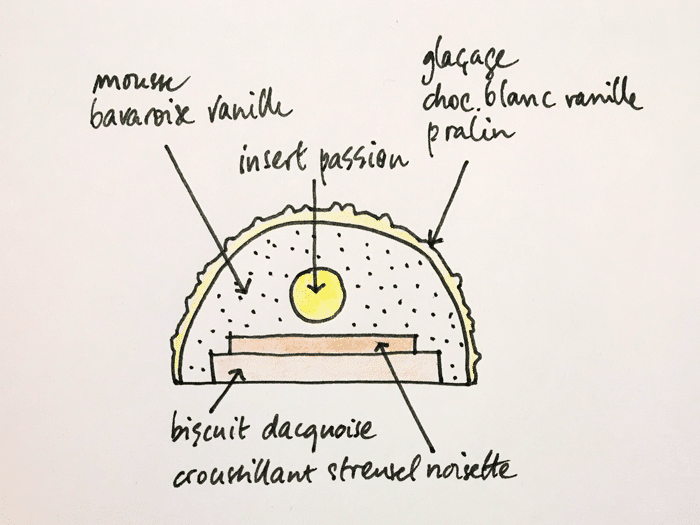 mousse
bavaroise vanille
glaçage
choc. blanc vanille
pralin
insert passion
biscuit dacquoise
croustillant streusel noisette